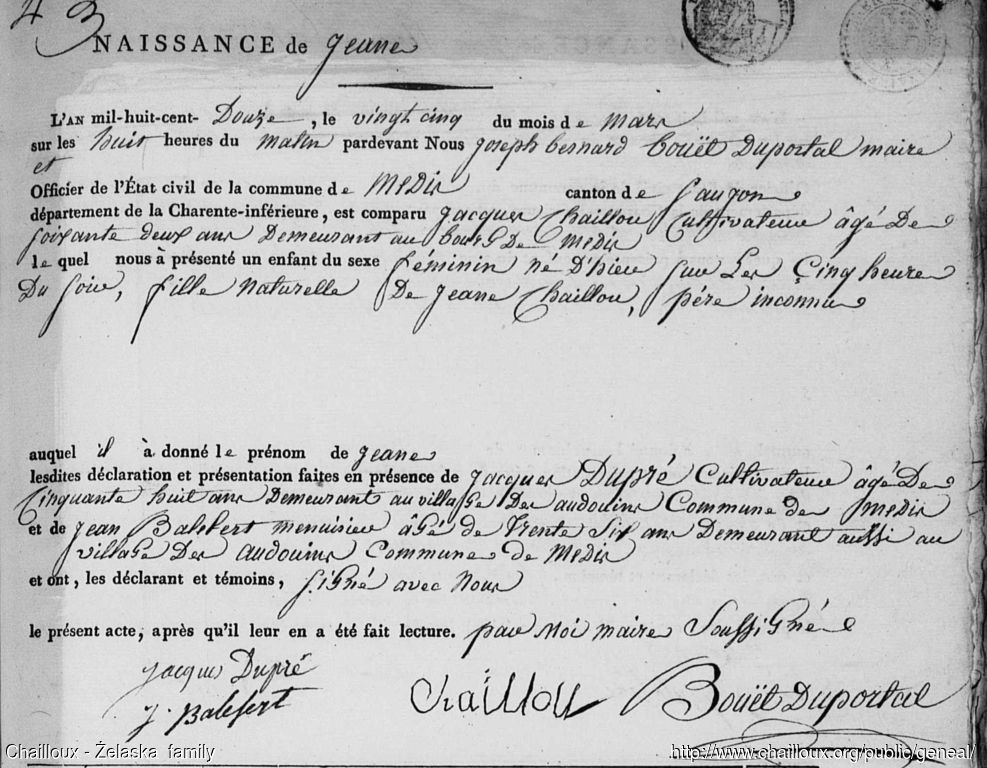 43
NAISSANCE de Jeane
L'AN mil-huit-cent- Douze, le vingt cinq du mois de mars
sur les huit heures du matin pardevant Nous joseph besnard Bouët Duportal maire
et
Officier de l'État civil de la commune de Medis canton de Saugon
département de la Charente-inférieure, est comparu jacques Chaillou Cultivateur âgé De
soixante deux ans Demeurant au bourg De Medis
le quel nous à présenté un enfant du sexe féminin né D'hier sur Les Çinq heure
Du soir, fille naturelle De jeane Chaillou, pére inconnu
auquel il à donné le prénom de jeane
lesdites déclaration et présentation faites en présence de jacques Dupré Cultivateur âgé De
Cinquante huit ans Demeurant au village Des audouins Commune de medis
et de jean menuisier âgé de trente six ans Demeurant aussi au
village Des audouins Commune de Medis
et ont, les déclarant et témoins, signé avec Nous
le présent acte, après qu'il leur en a été fait lecture. par Moi maire Soussigné
jacque Dupré
J.
Chaillou
Bouët Duportal
Chailloux - Želaska family
http://www.chailloux.org/public/geneal/